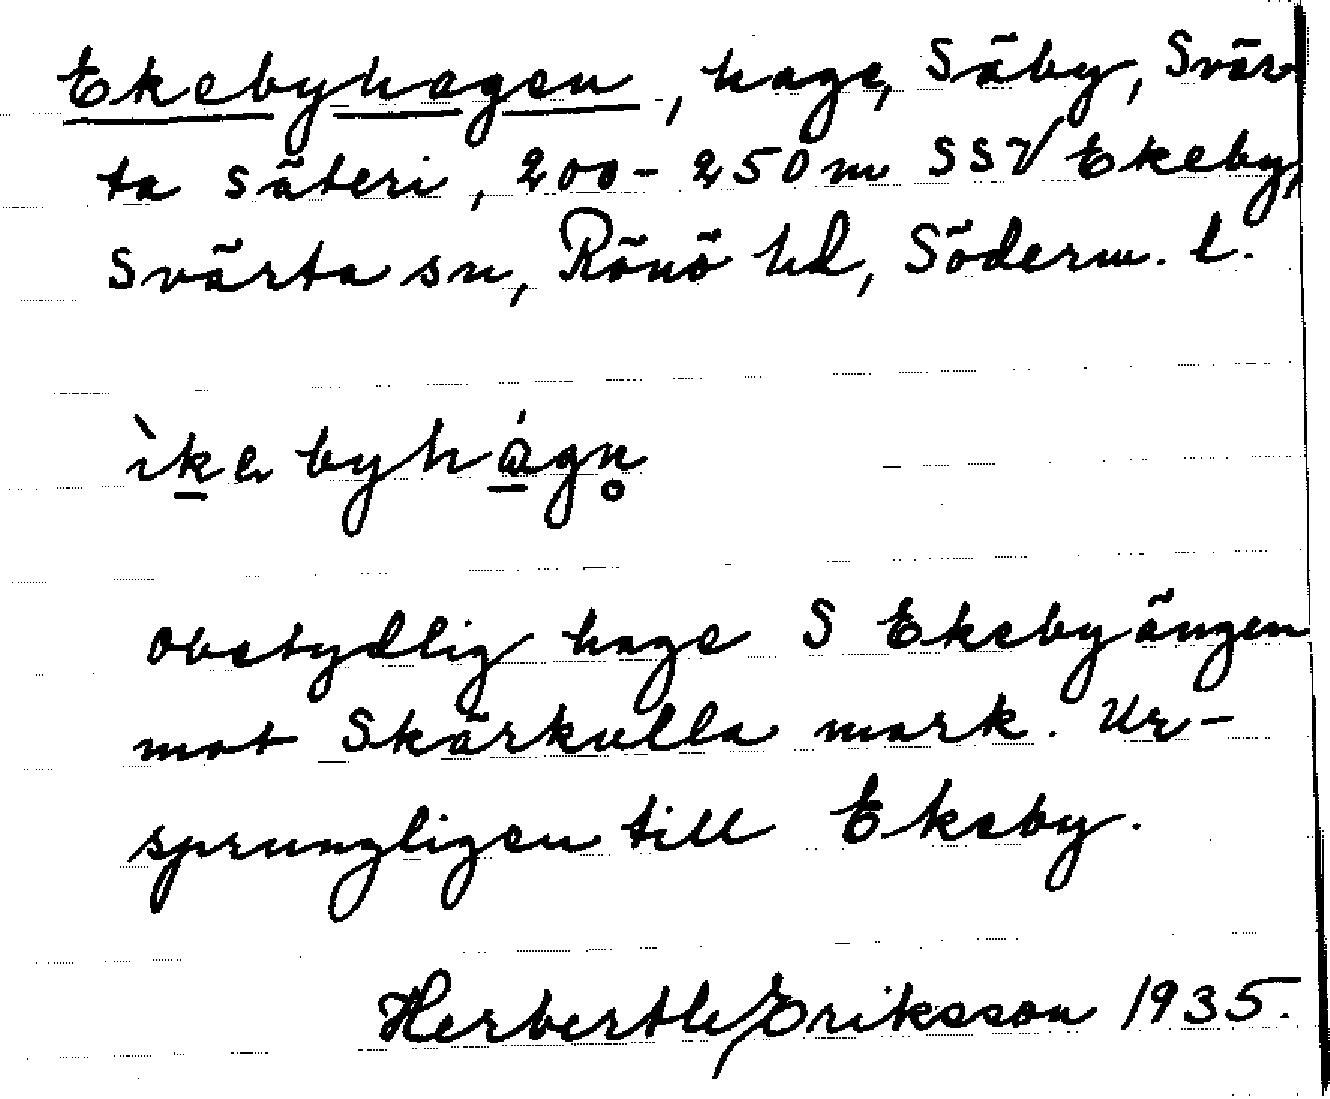 Ekebyhagen, hage, Säby, Svär
ta säteri, 200-250 m SSV Ekeby,
Svärta sn, Rönö hd, Söderm. l.
ìkebyhágn̥
Obetydlig hage S Ekebyängen
mot Skärkulla mark. Ur-
sprungligen till Ekeby.
Eriksson 1935.